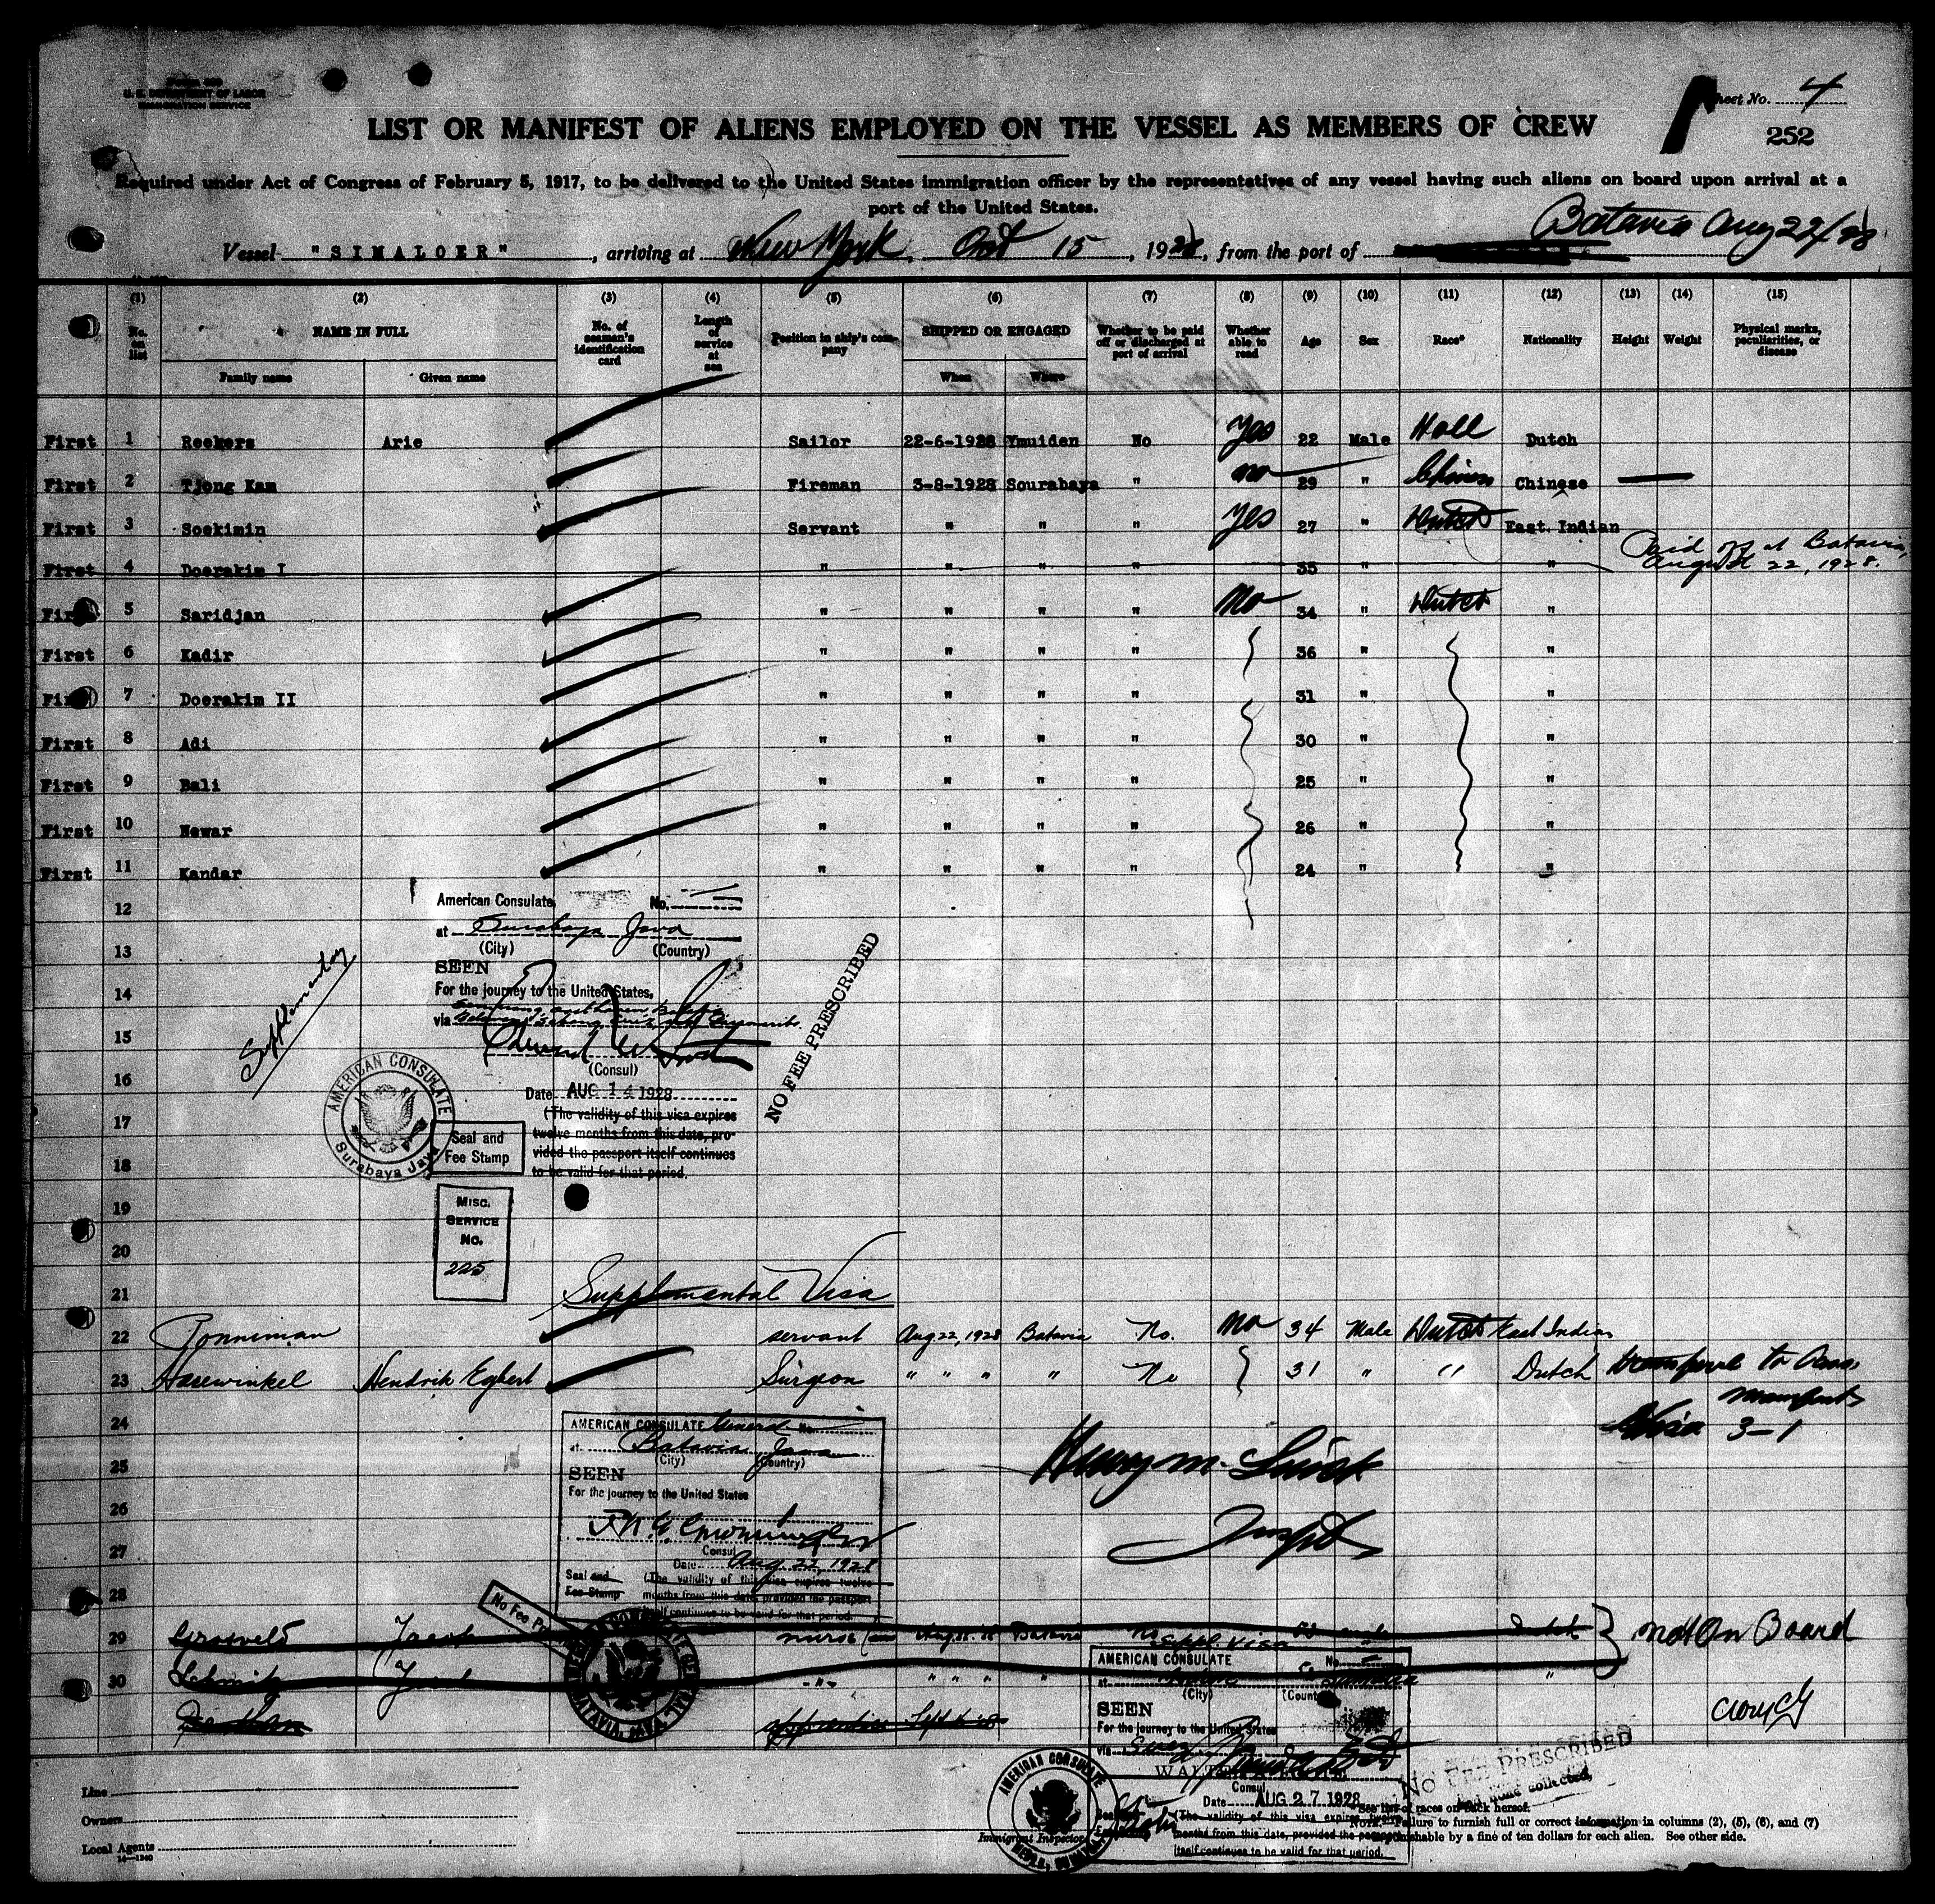 U. S. DEPARTMENT OF LABOR
IMMIGRATION SERVICE
Sheet No. 4
LIST OR MANIFEST OF ALIENS EMPLOYED ON THE VESSEL AS MEMBERS OF CREW
252
Required under Act of Congress of February 5, 1917, to be delivered to the United States immigration officer by the representatives of any vessel having such aliens on board upon arrival at a
port of the United States.
Vessel "SIMALOER", arriving at New York, Oct 15, 1928, from the port of Batavia Aug 22/28
(1) (2) (3) (4) (5) (6) (7) (8) (9) (10) (11) (12) (13) (14) (15)
No. on list NAME IN FULL Family name Given name No. of seaman's identification card Length of service at sea Position in ship's company SHIPPED OR ENGAGED When Where Whether to be paid off or discharged at port of arrival Whether able to read Age Sex Race* Nationality Height Weight Physical marks, peculiarities, or disease
First 1 Reekers Arie Sailor 22-6-1928 Ymuiden No Yes 22 Male Holl Dutch
First 2 Tjong Kam Fireman 3-8-1928 Sourabaya " no 29 " Chinese Chinese
First 3 Soekimin Servant " " " Yes 27 " Dutch East Indian
First 4 Doerakim I " " " " 35 " " Paid off at Batavia, August 22, 1928.
First 5 Saridjan " " " " No 34 " Dutch "
First 6 Kadir " " " " 36 " "
First 7 Doerakim II " " " " 31 " "
First 8 Adi " " " " 30 " "
First 9 Bali " " " " 25 " "
First 10 Newar " " " " 26 " "
First 11 Kandar " " " " 24 " "
12
13
14
15
16
17
18
19
20
21
American Consulate, No.
at Surabaya Java
(City) (Country)
SEEN
For the journey to the United States,
via
(Consul)
Date AUG 14 1928
(The validity of this visa expires
twelve months from this date, pro-
vided the passport itself continues
to be valid for that period.
NO FEE PRESCRIBED
Supplementary
AMERICAN CONSULATE
Surabaya Java
Seal and
Fee Stamp
MISC.
SERVICE
No.
225
Supplemental Visa
22 Ponniman servant Aug 22, 1928 Batavia No. No 34 Male Dutch East Indian
23 Harewinkel Hendrik Egbert Surgeon " " " " No 31 " " Dutch
Visa 3-1
24
25
26
27
28
AMERICAN CONSULATE General No.
at Batavia, Java
(City) (Country)
SEEN
For the journey to the United States
Consul
Date Aug 22, 1928
Seal and
Fee Stamp
(The validity of this visa expires twelve
months from this date, provided the passport
itself continues to be valid for that period.
Henry M.
Inspt
No Fee
BATAVIA, JAVA
29 nurse Batavia No Dutch
30 " " " " "
not On Board
apprentice
Suppl. Visa
AMERICAN CONSULATE No.
at
(City) (Country)
SEEN
For the journey to the United States
via Suez
Consul
Date AUG 27 1928
(The validity of this visa expires twelve
months from this date, provided the passport
itself continues to be valid for that period.
AMERICAN CONSULATE
NO FEE PRESCRIBED
And none collected,
Line
Owners
Local Agents
14—1240
Immigrant Inspector
*See list of races on back hereof.
NOTE.—Failure to furnish full or correct information in columns (2), (5), (6), and (7)
punishable by a fine of ten dollars for each alien. See other side.